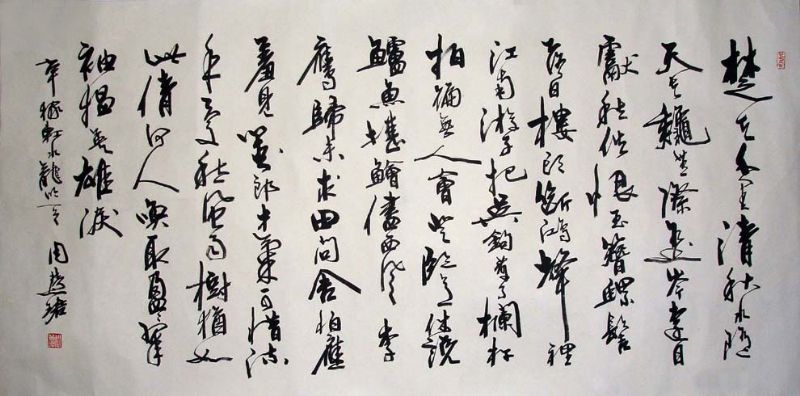 楚天千里清秋水隨
天去穐無際遥岑遠目
獻愁供恨玉簪螺髻
落日樓頭斷鴻聲裡
江南游子把吴鉤看了欄杆
拍徧無人會登臨意休說
鱸魚堪鱠儘西風季
鷹歸未求田問舍怕應
羞見劉郎才氣可惜流
年憂愁風雨樹猶如
此倩何人喚取盈盈翠
袖揾英雄淚
辛稼軒水龍吟 周慧珺